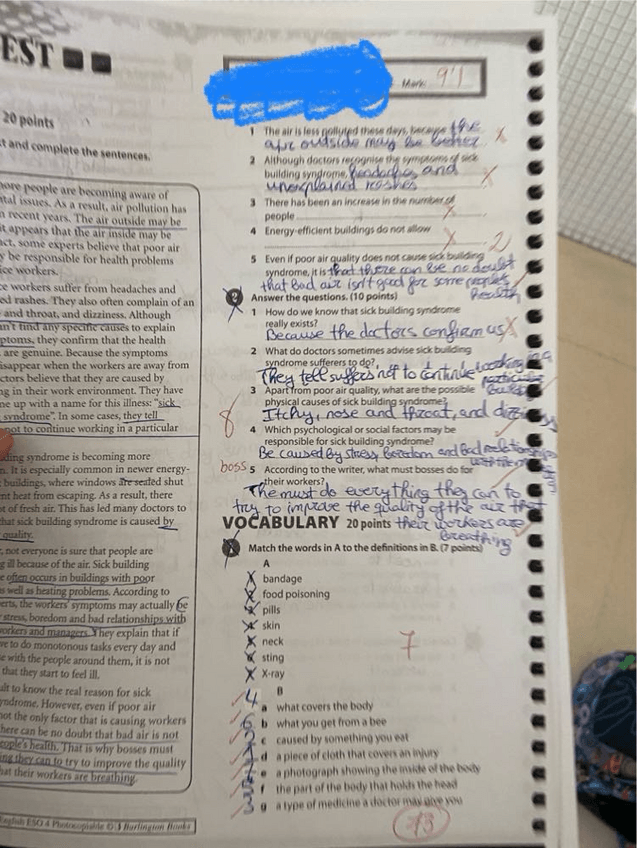 EST
20 points
t and complete the sentences.
ore people are becoming aware of
tal issues. As a result, air pollution has
n recent years. The air outside may be
it appears that the air inside may be
ct, some experts believe that poor air
y be responsible for health problems
ice workers.
e workers suffer from headaches and
ed rashes. They also often complain of an
and throat, and dizziness. Although
n't find any specific causes to explain
ptoms, they confirm that the health
are genuine. Because the symptoms
isappear when the workers are away from
ctors believe that they are caused by
ng in their work environment. They have
me up with a name for this illness: "sick
syndrome". In some cases, they tell
not to continue working in a particular
ding syndrome is becoming more
n. It is especially common in newer energy-
buildings, where windows are sealed shut
nt heat from escaping. As a result, there
t of fresh air. This has led many doctors to
hat sick building syndrome is caused by
quality.
, not everyone is sure that people are
g ill because of the air. Sick building
e often occurs in buildings with poor
s well as heating problems. According to
erts, the workers' symptoms may actually be
stress, boredom and bad relationships with
orkers and managers. They explain that if
ve to do monotonous tasks every day and
e with the people around them, it is not
that they start to feel ill.
ult to know the real reason for sick
yndrome. However, even if poor air
not the only factor that is causing workers
here can be no doubt that bad air is not
eople's health. That is why bosses must
ing they can to try to improve the quality
hat their workers are breathing.
English ESO 4 Photocopiable © Burlington Books
Mark: 9'1
1 The air is less polluted these days, because the
air outside may be better.
2 Although doctors recognise the symptoms of sick
building syndrome, headaches and
unexplained rashes
3 There has been an increase in the number of
people
4 Energy-efficient buildings do not allow
2
5 Even if poor air quality does not cause sick building
syndrome, it is that there can be no doubt
that bad air isn't good for some people's
health
2 Answer the questions. (10 points)
1 How do we know that sick building syndrome
really exists?
Because the doctors confirm us
2 What do doctors sometimes advise sick building
syndrome sufferers to do?
They tell suffers not to continue working in a
particular
3 Apart from poor air quality, what are the possible
physical causes of sick building syndrome?
Itchy, nose and throat, and
8
4 Which psychological or social factors may be
responsible for sick building syndrome?
Be caused by stress, boredom and bad relationships
boss 5 According to the writer, what must bosses do for
their workers?
The must do everything they can to
try to improve the quality of the air that
their workers are
breathing
VOCABULARY 20 points
Match the words in A to the definitions in B. (7 points)
A
bandage
food poisoning
pills
skin
neck
sting
X-ray
7
B
4 a what covers the body
b what you get from a bee
c caused by something you eat
d a piece of cloth that covers an injury
e a photograph showing the inside of the body
f the part of the body that holds the head
g a type of medicine a doctor may give you